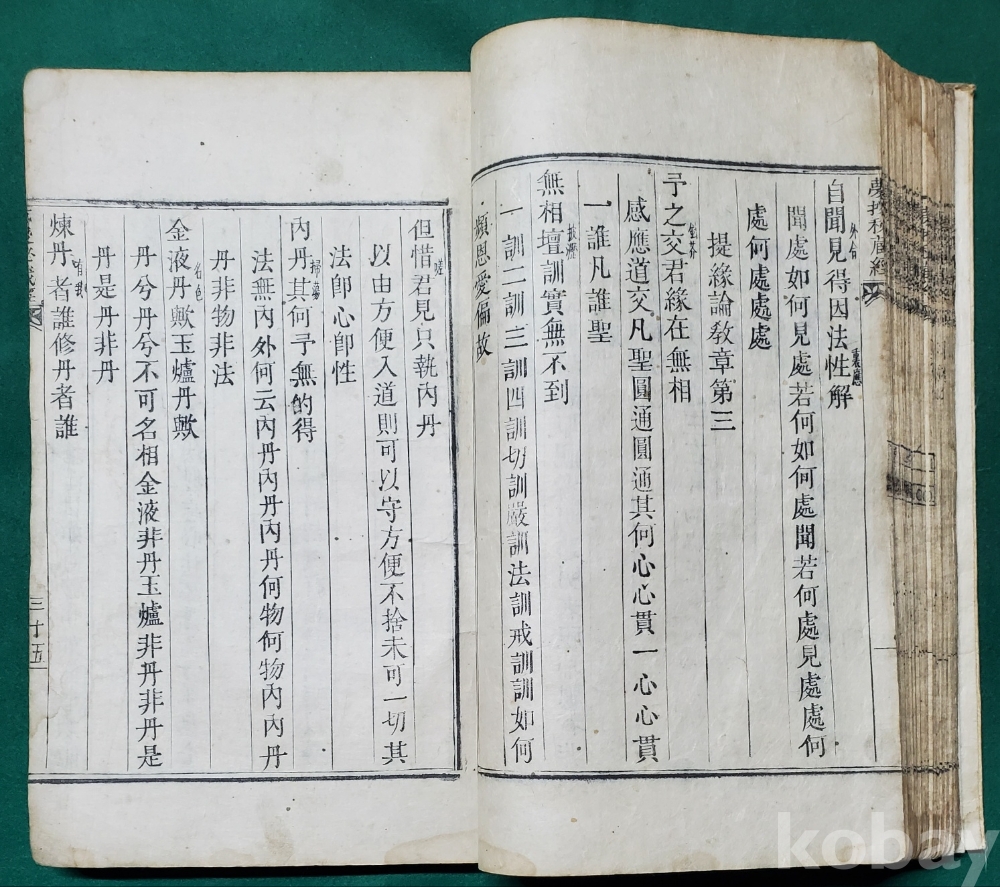 自聞見得因法性解
聞處如何見處若何如何處聞若何處見處處何
處何處處處
提緣論敎章第三
予之交君緣在無相
感應道交凡聖圓通圓通其何心心貫一心心貫
一誰凡誰聖
無相壇訓實無不到
一訓二訓三訓四訓切訓嚴訓法訓戒訓訓如何
恩愛偏故
但惜君見只執內丹
以由方便入道則可以守方便不捨未可一切其
法卽心卽性
內丹其何予無的得
法無內外何云內丹內丹內丹何物何物內內丹
丹非物非法
金液丹歟玉爐丹歟
名色
丹兮丹兮不可名相金液非丹玉爐非丹非丹是
丹是丹非丹
煉丹者誰修丹者誰
三十五
kobay